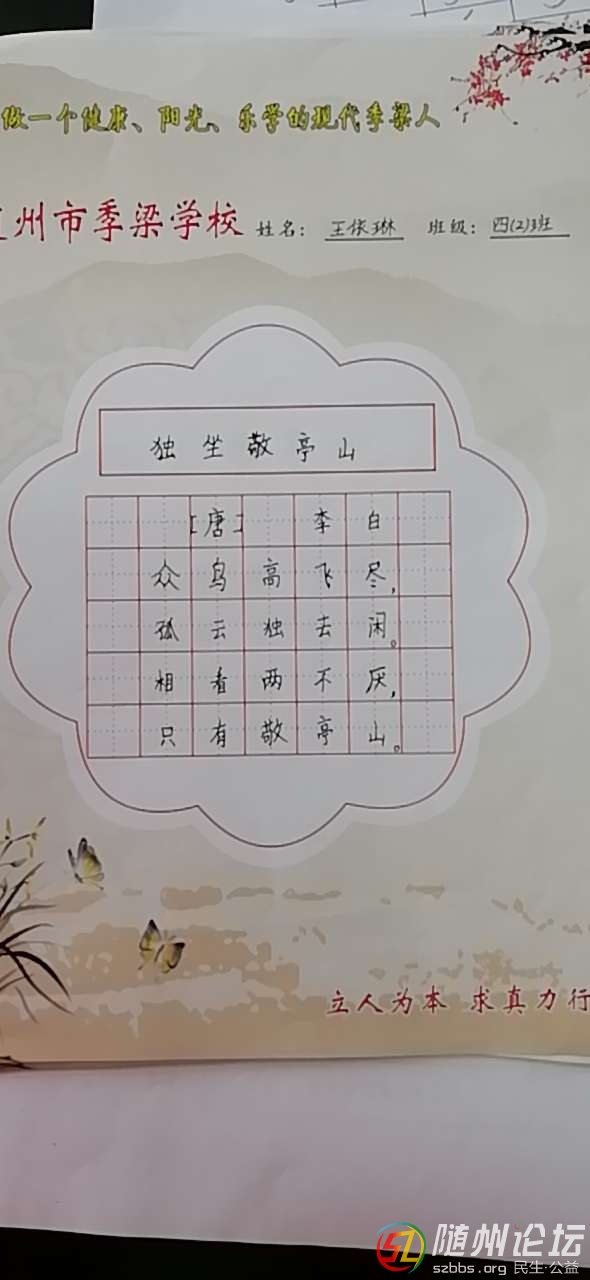 做一个健康、阳光、乐学的现代季梁人
州市季梁学校 姓名: 王依琳 班级: 四(2)班
独坐敬亭山
[唐] 李白
众鸟高飞尽,
孤云独去闲。
相看两不厌,
只有敬亭山。
立人为本 求真力行
随州论坛
szbbs.org 民生·公益